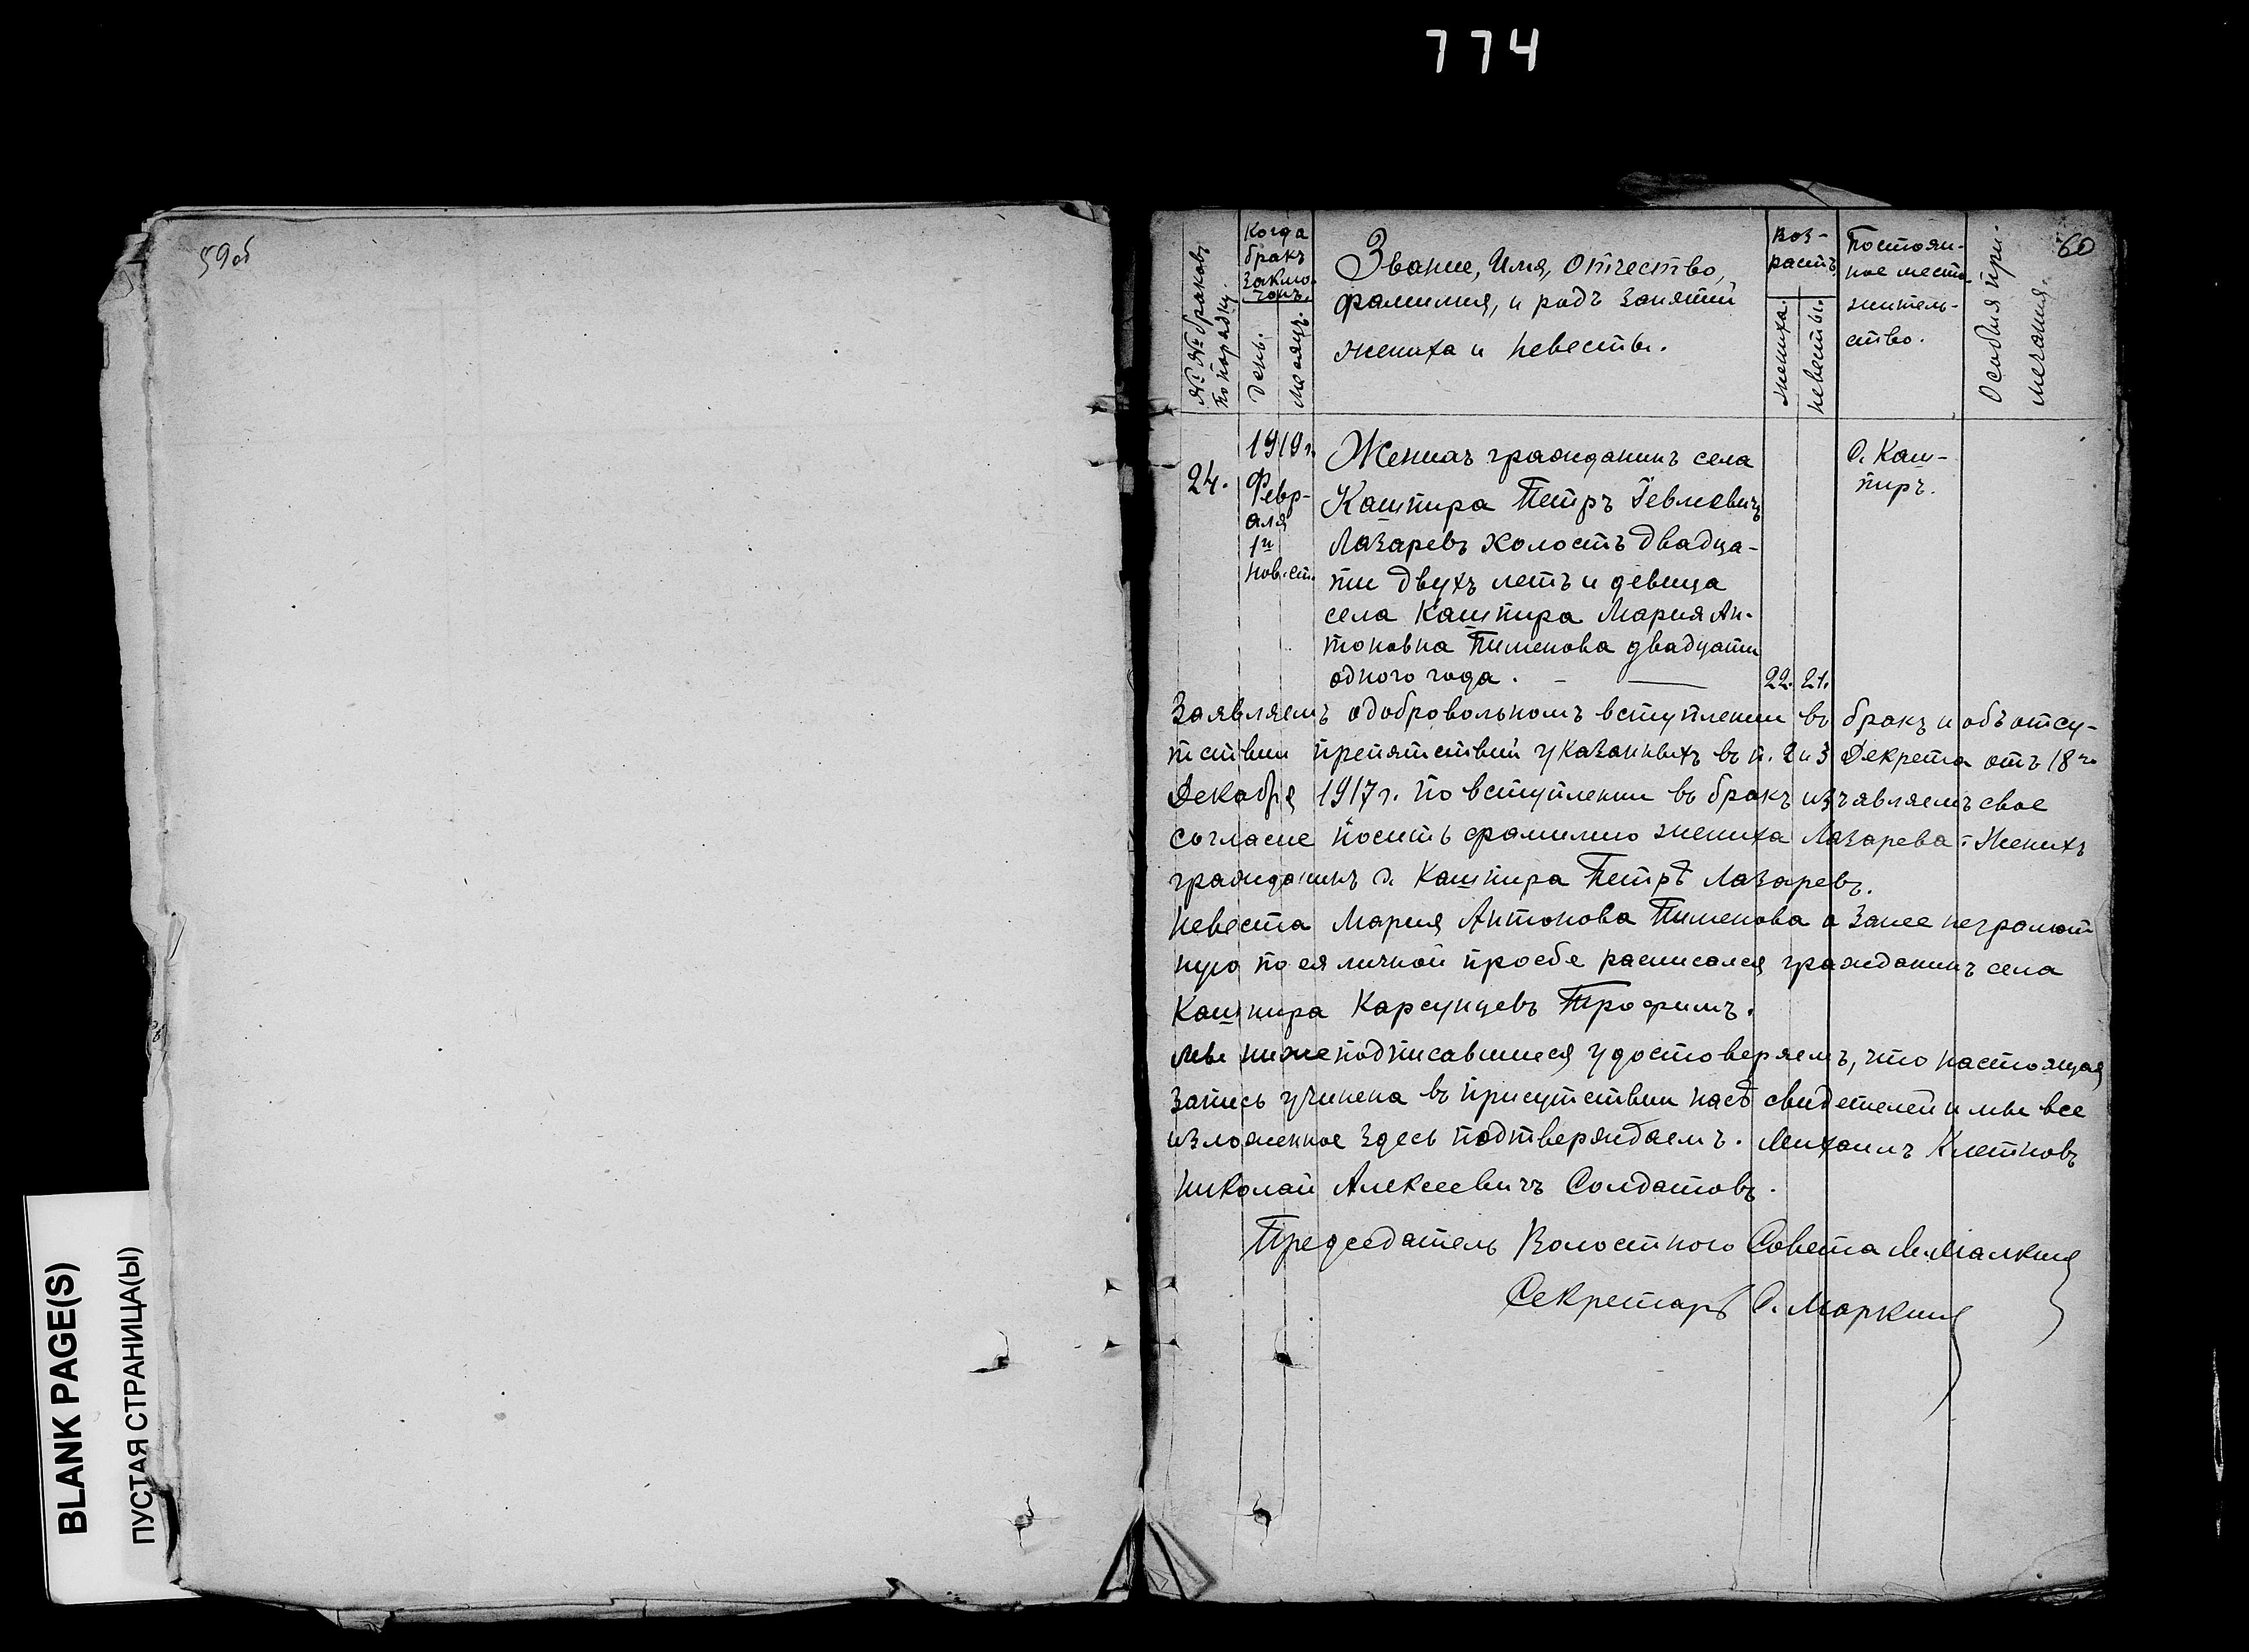 774
59об
60
№№ браковъ по порядку.
Когда бракъ заключонъ.
День.
месяцъ.
Звание, Имя, Отчество,
фамилия, и родъ занятий
жениха и невесты.
Воз-
растъ
жениха.
невесты.
Постоян-
ное место
житель-
ство.
Особыя при-
мечания.
24.
1919 г.
Февр-
аля
1го
нов. ст.
Женихъ гражданинъ села
Кашпира Петръ
Лазаревъ холостъ двадца-
ти двухъ летъ и девица
села Кашпира Мария Ан-
тоновна Пименова двадцати
одного года. —
22. 21.
С. Каш-
пиръ.
Заявляемъ о добровольномъ вступлении въ бракъ и объ отсу-
тствии препятствий указанныхъ въ п. 2 и 3 Декрета отъ 18го
Декабря 1917 г. По вступлении въ бракъ изъявляемъ свое
согласие носить фамилию жениха Лазарева. Женихъ
гражданинъ с. Кашпира Петръ Лазаревъ.
Невеста Мария Антонова Пименова а за нее неграмот
ную по ея личной просбе расписался гражданинъ села
Кашпира Карсунцевъ Трофимъ.
Мы нижеподписавшиеся удостоверяемъ, что настоящая
запись учинена въ присутствии насъ свидетелей и мы все
изложенное здесь подтверждаемъ. Михаилъ Клетновъ
Николай Алексеевичъ Солдатовъ.
Председатель Волостного Совета М. Малкинъ
Секретарь С. Маркинъ
BLANK PAGE(S)
ПУСТАЯ СТРАНИЦА(Ы)